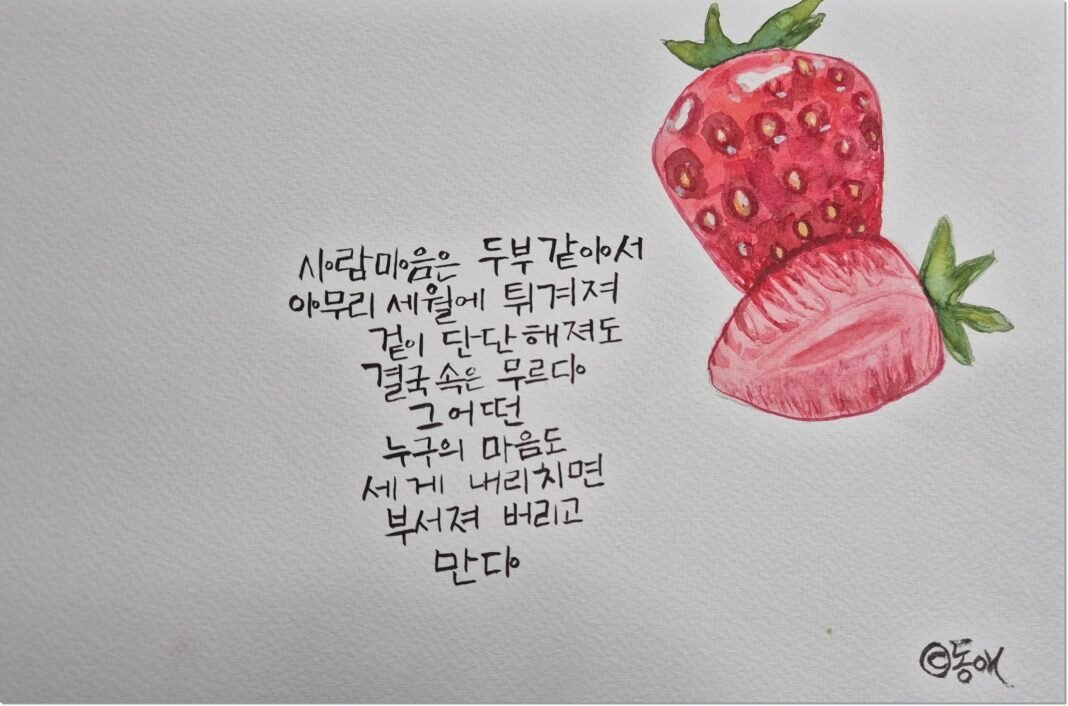 사람마음은 두부같아서
아무리 세월에 튀겨져
겉이 단단해져도
결국 속은 무르다
그 어떤
누구의 마음도
세게 내리치면
부서져 버리고
만다
©동애